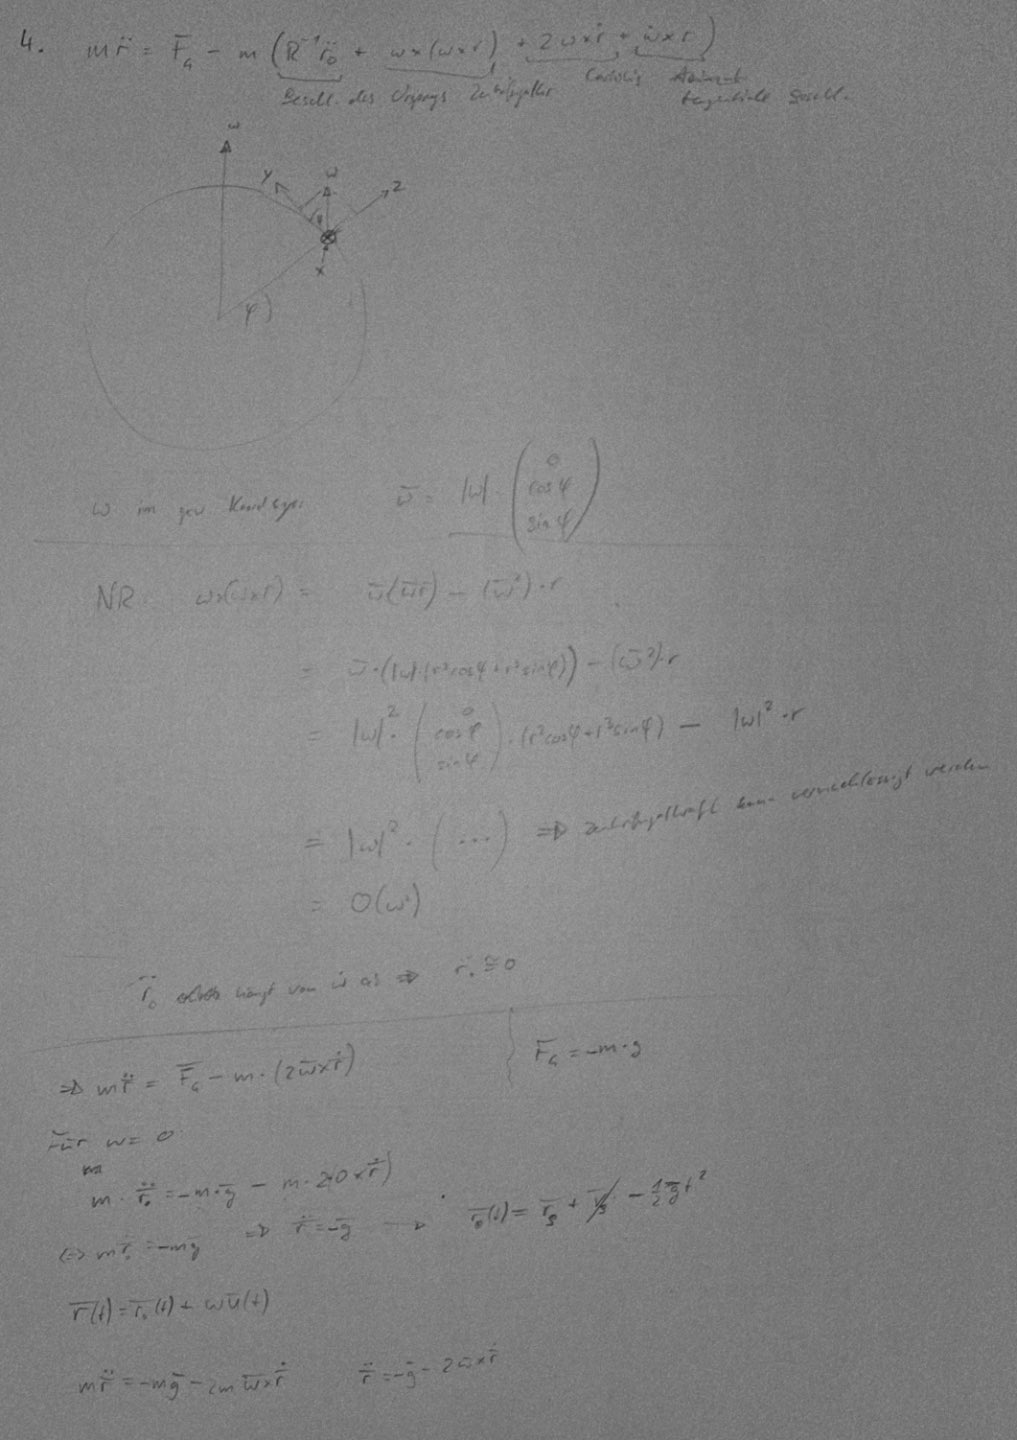 4. m r̈ = F̄_G − m ( R⁻¹ r̈₀ + ω×(ω×r) + 2 ω×ṙ + ω̇×r )
Beschl. des Ursprungs Zentrifugalkr. Coriolis
tangentiale Beschl.
ω
y ω z
φ
x
φ
ω im gew. Koordsys.: ω̄ = |ω| · ( 0 cos φ sin φ )
NR: ω×(ω×r) = ω̄(ω̄r̄) − (ω̄²)·r
= ω̄·(|ω|·(r²cosφ + r³sinφ)) − (ω̄²)·r
= |ω|² · ( 0 cos φ sin φ ) · (r²cosφ + r³sinφ) − |ω|²·r
= |ω|² · ( ... ) ⇒ Zentrifugalkraft kann vernachlässigt werden
= O(ω²)
r̈₀ hängt von ω ab ⇒ r̈₀ ≅ 0
⇒ m r̈ = F̄_G − m·(2ω̄×ṙ) F̄_G = −m·g
Für ω = 0
m · r̈₀ = −m·ḡ − m·2(0×ṙ)
⇔ m r̈₀ = −mḡ ⇒ r̈ = −ḡ → r̄₀(t) = r̄₀ + v̄₀ − ½ ḡt²
r̄(t) = r̄₀(t) + ωū(t)
m r̈ = −mḡ − 2m ω̄×ṙ r̈ = −ḡ − 2ω̄×ṙ